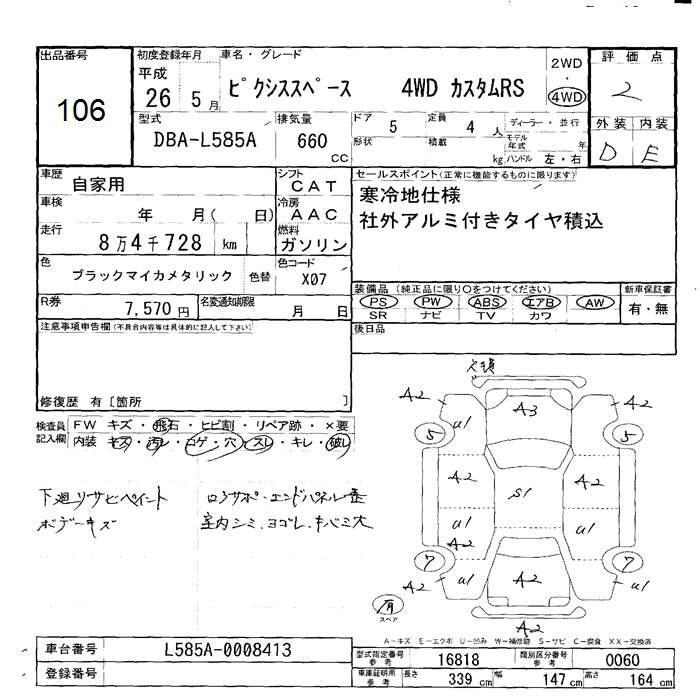 出品番号
106
初度登録年月
平成
26 5月
車名・グレード
ピクシススペース 4WD カスタムRS
2WD
・
4WD
評価点
2
外装 内装
D E
型式
DBA-L585A
排気量
660
CC
ドア 5
定員 4 人
形状
積載 kg
ディーラー・並行
モデル年式 年
ハンドル 左・右
車歴 自家用
車検 年 月( 日)
走行 8万4千728 km
シフト CAT
冷房 AAC
燃料 ガソリン
色 ブラックマイカメタリック 色替
色コード X07
R券 7,570円
名変通知期限 月 日
セールスポイント(正常に機能するものに限ります)
寒冷地仕様
社外アルミ付きタイヤ積込
装備品(純正品に限り○をつけてください)
PS PW ABS エアB AW
SR ナビ TV カワ
新車保証書
有・無
後日品
注意事項申告欄(不具合内容等は具体的に記入して下さい)
修復歴 有[箇所 ]
検査員記入欄
FW キズ・飛石・ヒビ割・リペア跡・×要
内装 キズ・汚レ・コゲ・穴・スレ・キレ・破レ
下廻リサビペイント
ボデーキズ
エンドパネル
室内シミ、ヨゴレ、キバミ大
A2 A3 A2
u1 u1
5 5
A2 S1 A2
u1 u1
A2
7 7
A2 u1 A2 u1
A2
有
スペア
A-キズ E-エクボ U-凹み W-補修跡 S-サビ C-腐食 XX-交換済
車台番号 L585A-0008413
登録番号
型式指定番号 参考 16818
類別区分番号 参考 0060
車庫証明用 参考 長さ 339 cm 幅 147 cm 高さ 164 cm